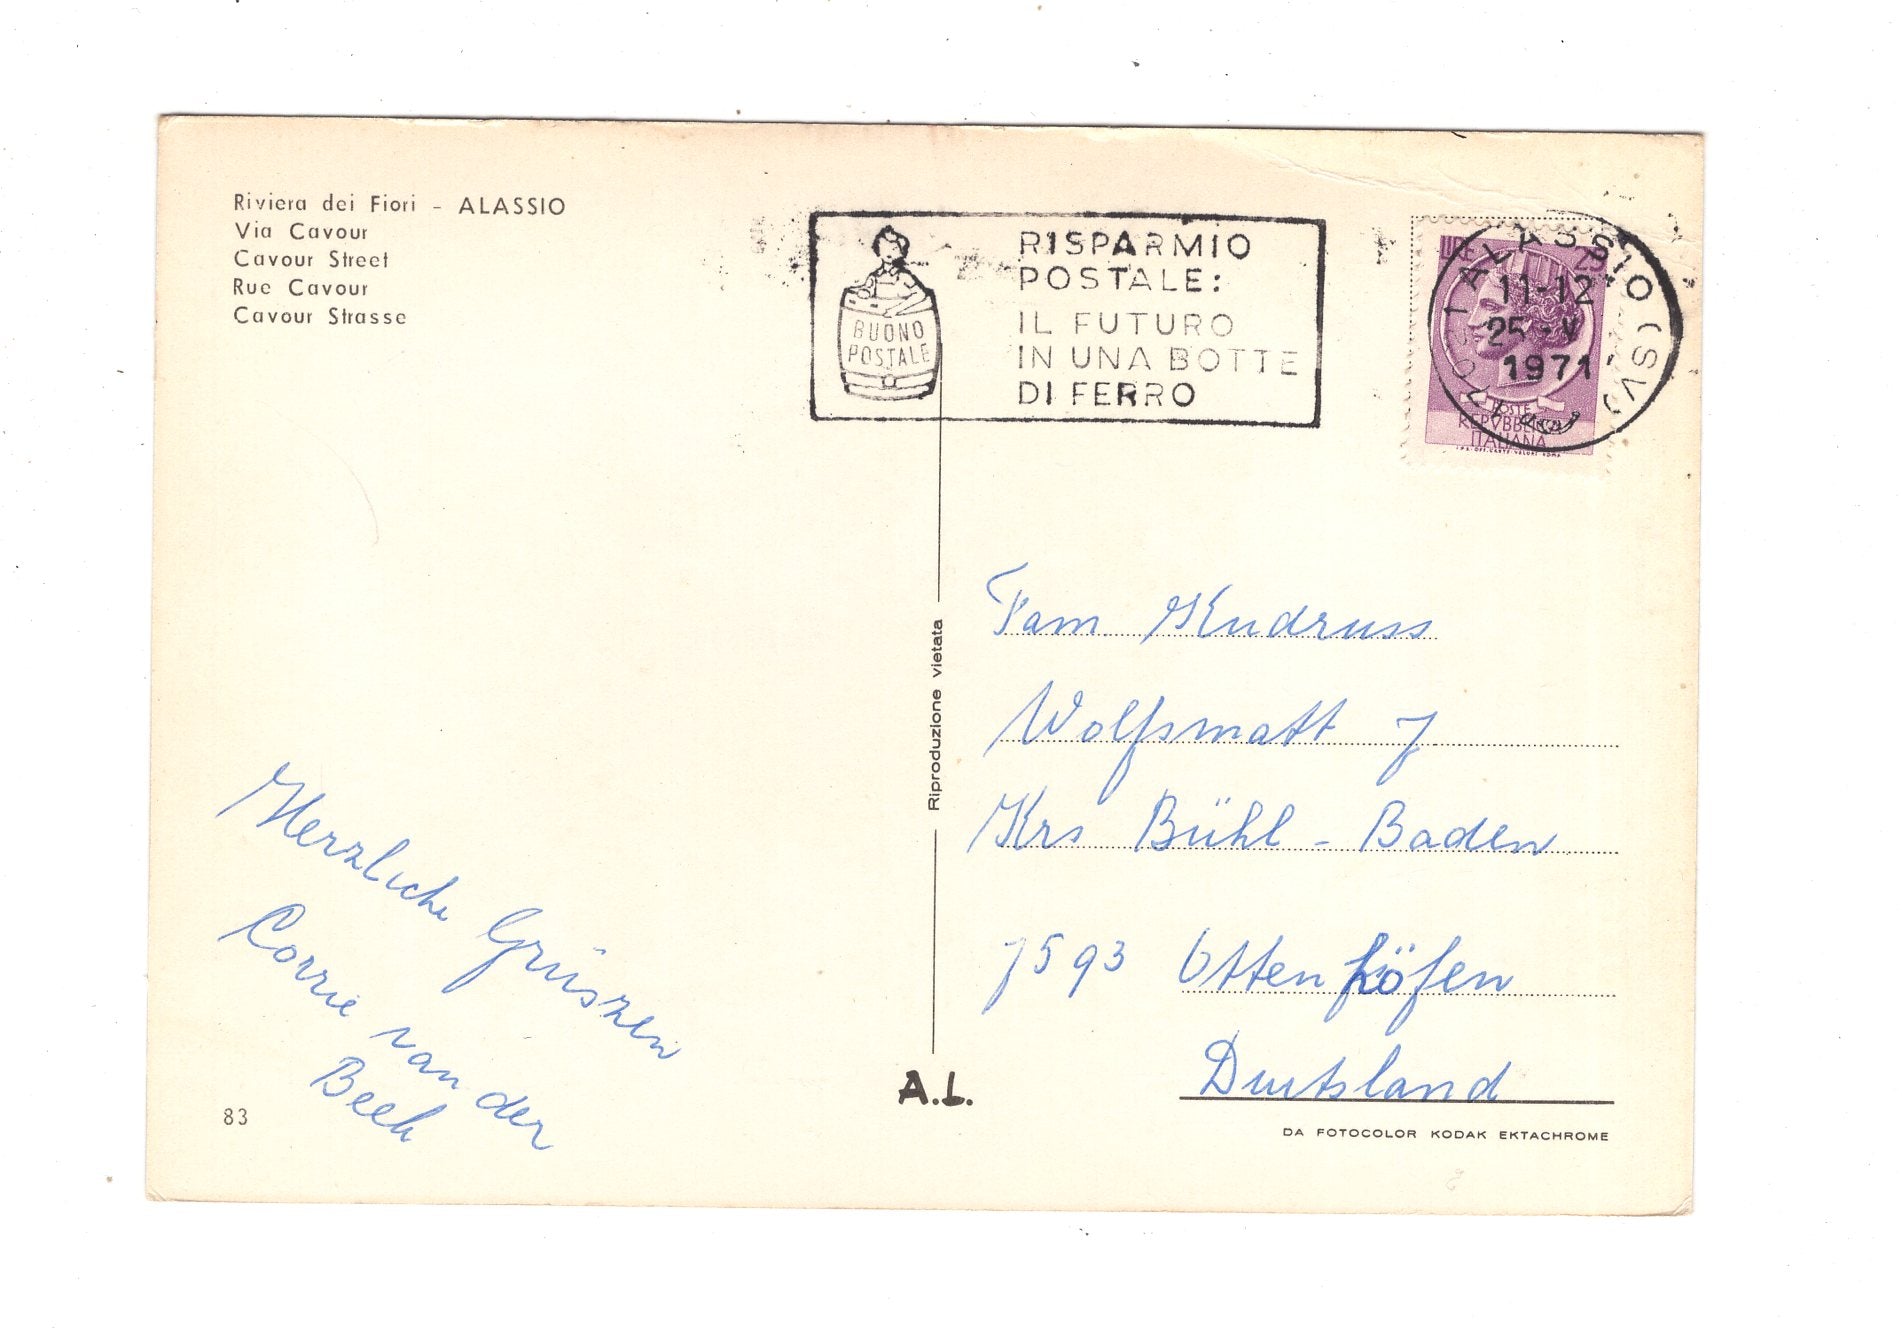 Riviera dei Fiori - ALASSIO
Via Cavour
Cavour Street
Rue Cavour
Cavour Strasse
BUONO
POSTALE
RISPARMIO
POSTALE:
IL FUTURO
IN UNA BOTTE
DI FERRO
LIRE 25
POSTE
REPVBBLICA
ITALIANA
I.P.S.-OFF.CARTE-VALORI-ROMA
ALASSIO (SV)
11-12
25-V
1971
Herzliche Grüszen
Corrie van der
Beek
83
Riproduzione vietata
A.L.
Fam Kudruss
Wolfsmatt 7
Krs Bühl - Baden
7593 Ottenhöfen
Duitsland
DA FOTOCOLOR KODAK EKTACHROME